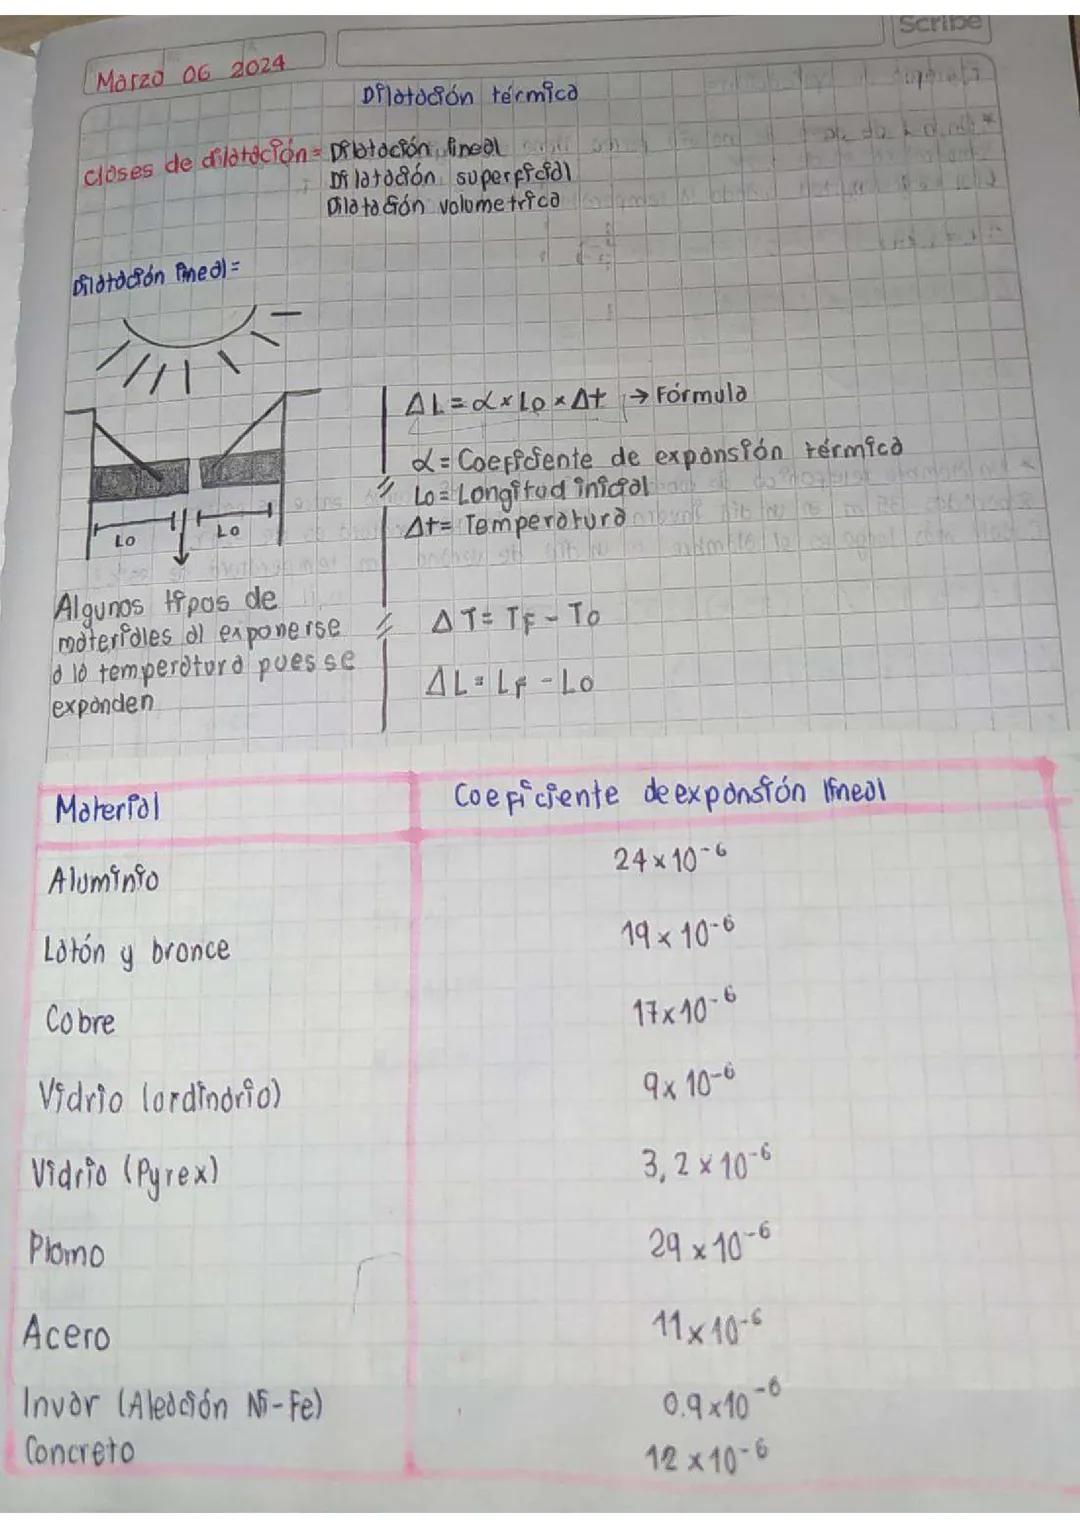 Scribe
Marzo 06 2024
Dilatación térmica
Clases de dilatación = Dilatación lineal
Dilatación superficial
Dilatación volumetrica
Dilatación lineal =
ΔL = α × Lo × Δt → Fórmula
α = Coeficiente de expansión térmica
Lo = Longitud inicial
Δt = Temperatura
Lo
Lo
Algunos tipos de
materiales al exponerse
a la temperatura pues se
expanden
ΔT = TF - To
ΔL = LF - Lo
Material
Coeficiente de expansión lineal
Aluminio 24 × 10⁻⁶
Latón y bronce 19 × 10⁻⁶
Cobre 17 × 10⁻⁶
Vidrio (ordinario) 9 × 10⁻⁶
Vidrio (Pyrex) 3,2 × 10⁻⁶
Plomo 29 × 10⁻⁶
Acero 11 × 10⁻⁶
Invar (Aleación Ni-Fe) 0.9 × 10⁻⁶
Concreto 12 × 10⁻⁶